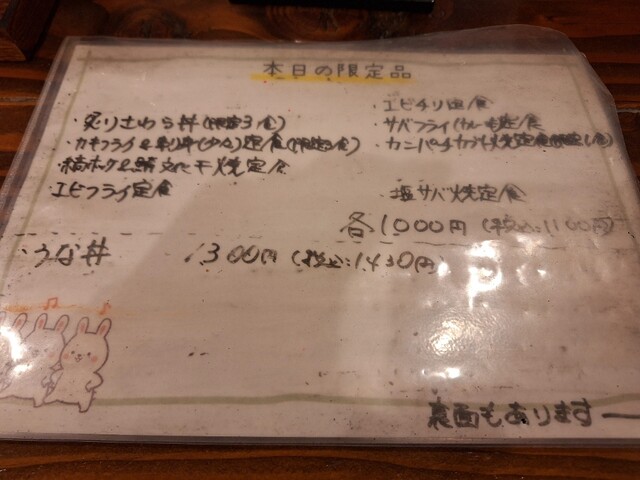 本日の限定品
・炙りさわら丼(限定3食)
・カキフライ&刺身(少々)定食(限定5食)
縞ホッケ&鯖文化干焼定食
・エビフライ定食
・エビチリ定食
・サバフライカレー定食
・カンパチカブト焼定食
・塩サバ焼定食
各1000円(税込:1100円)
・うな丼 1300円(税込:1430円)
裏面もあります